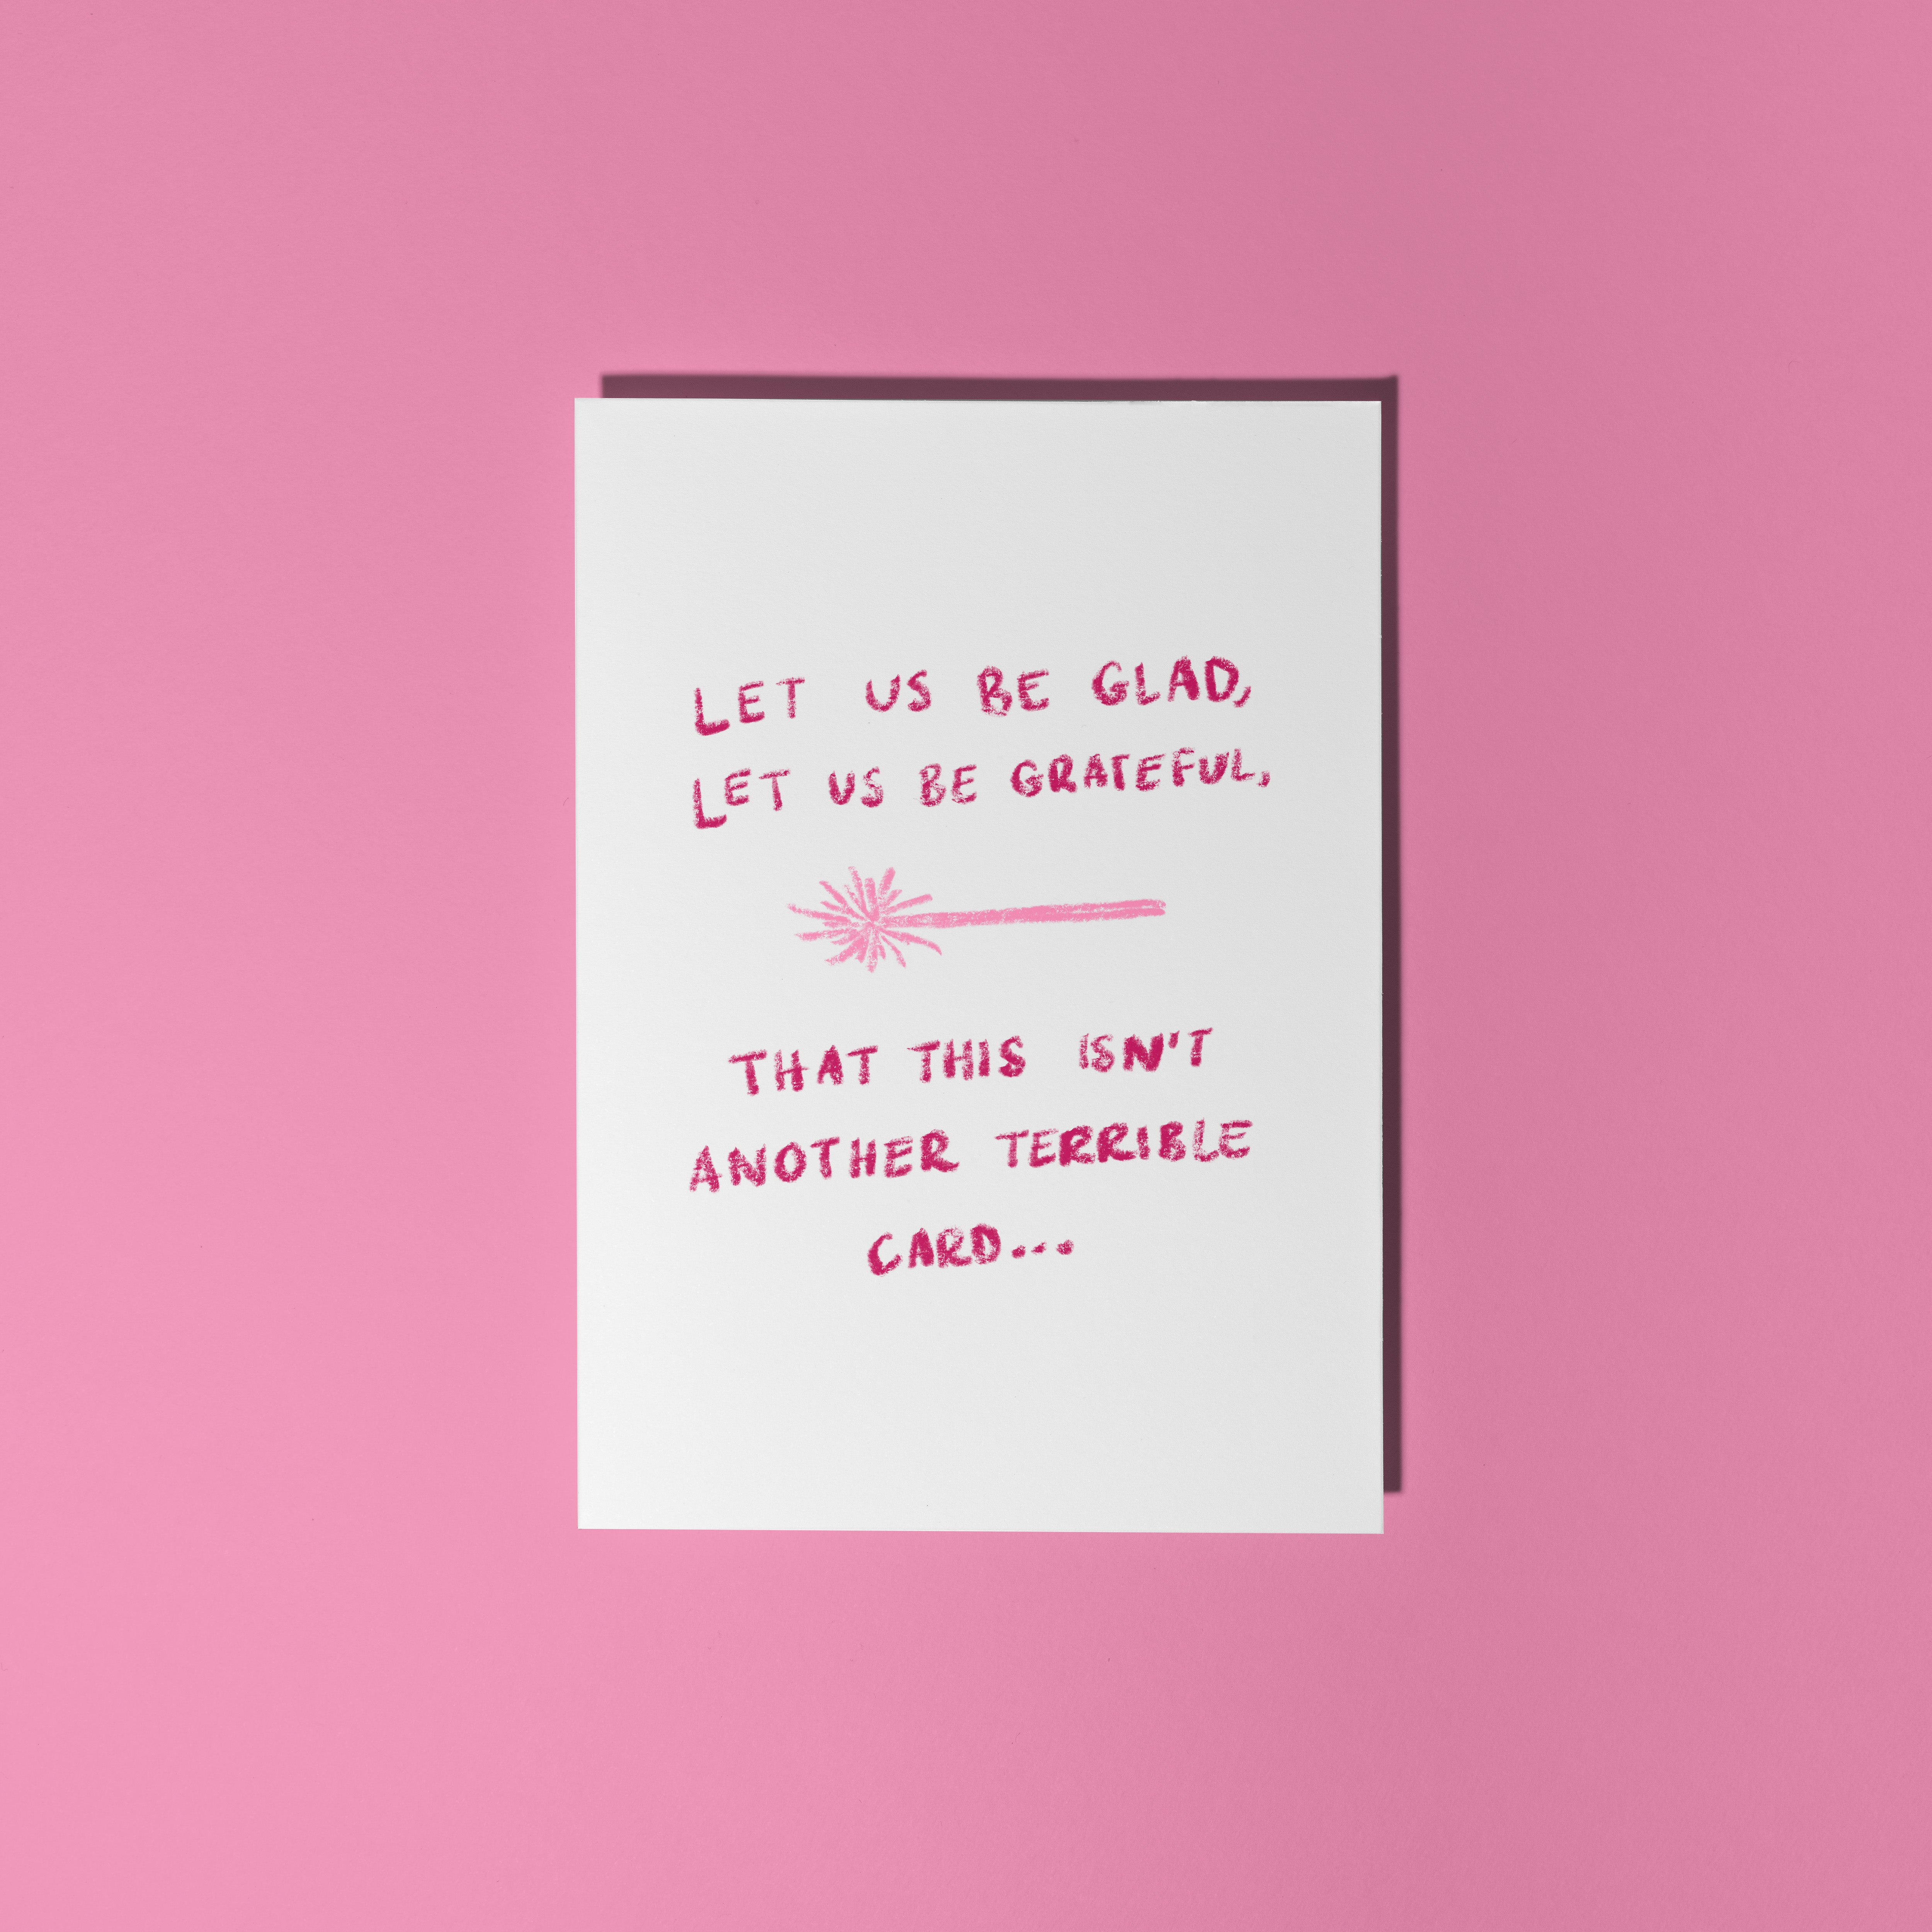 LET US BE GLAD,
LET US BE GRATEFUL,
THAT THIS ISN'T
ANOTHER TERRIBLE
CARD...